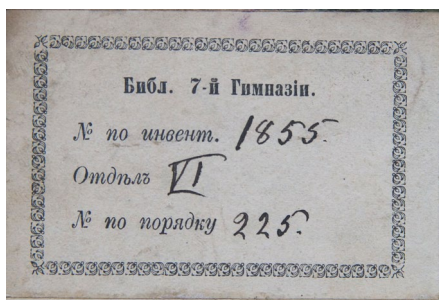 Библ. 7-й Гимназіи.
№ по инвент. 1855.
Отдѣлъ VI
№ по порядку 225.